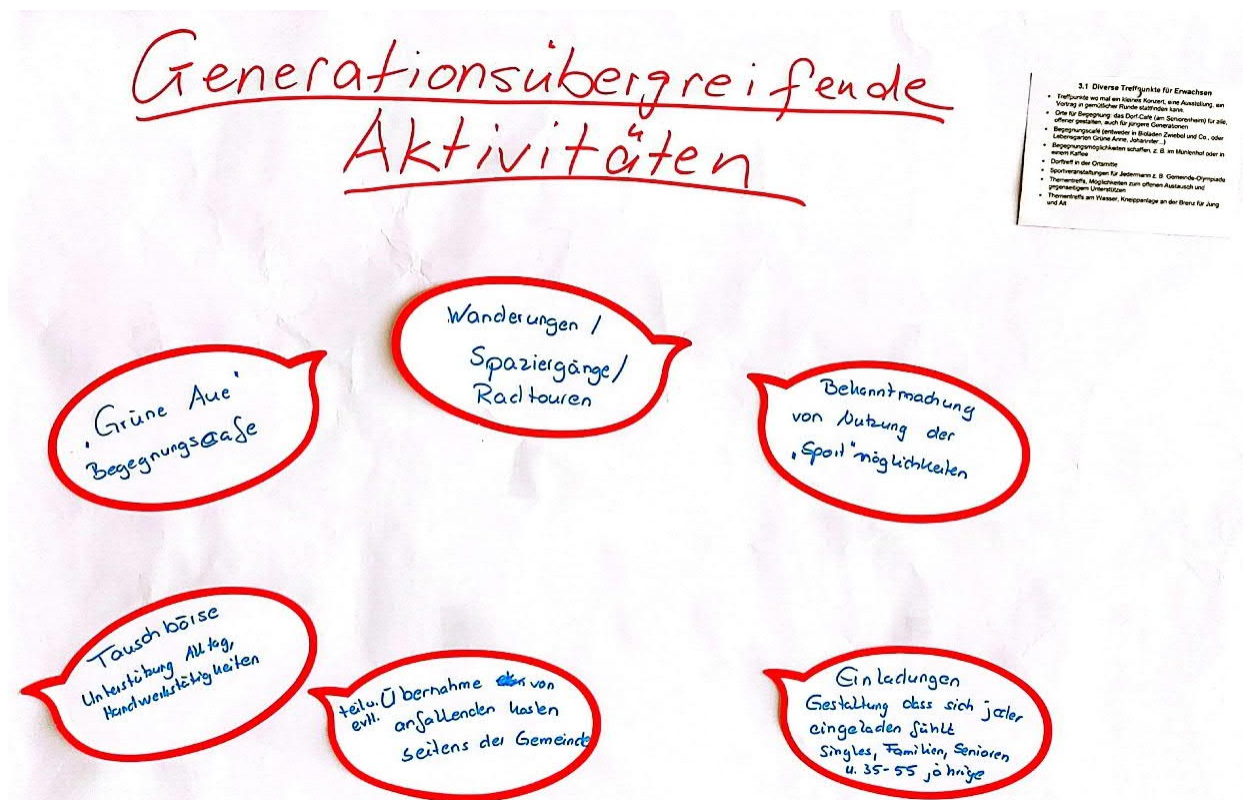 Generationsübergreifende
Aktivitäten
3.1 Diverse Treffpunkte für Erwachsen
• Treffpunkte wo mal ein kleines Konzert, eine Ausstellung, ein
Vortrag in gemütlicher Runde stattfinden kann.
• Orte für Begegnung: das Dorf-Café (am Seniorenheim) für alle,
offener gestalten, auch für jüngere Generationen
• Begegnungscafé (entweder in Bioladen Zwiebel und Co., oder
Lebensgarten Grüne Anne, Johanniter...)
• Begegnungsmöglichkeiten schaffen, z. B. im Mühlenhof oder in
einem Kaffee
• Dorftreff in der Ortsmitte
• Sportveranstaltungen für Jedermann z. B. Gemeinde-Olympiade
• Thementreffs, Möglichkeiten zum offenen Austausch und
gegenseitigem Unterstützen
• Thementreffs am Wasser, Kneippanlage an der Brenz für Jung
und Alt
Wanderungen /
Spaziergänge/
Radtouren
"Grüne Aue"
Begegnungscafe
Bekanntmachung
von Nutzung der
"Sport"möglichkeiten
Tauschbörse
Unterstützung Alltag,
Handwerkstätigkeiten
teilw. Übernahme von
evtl. anfallenden Kosten
seitens der Gemeinde
Einladungen
Gestaltung dass sich jeder
eingeladen fühlt
Singles, Familien, Senioren
u. 35-55 jährige